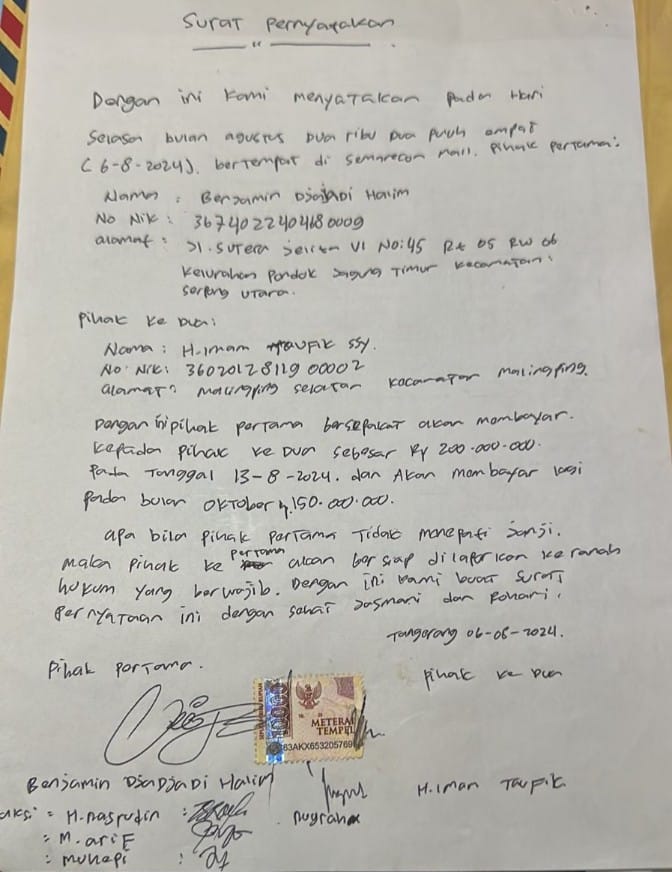 Surat Pernyatakan
Dengan ini kami menyatakan pada Hari
Selasa bulan agustus Dua ribu Dua puluh empat
(6-8-2024). bertempat di Semarecon Mall. Pihak Pertama:
Nama : Benjamin Djajadi Halim
No Nik : 3674022404680009
alamat : Jl. SUTERA Jelita VI No:45 Rt 05 RW 06
Kelurahan Pondok Jagung Timur Kecamatan:
Serpong UTara.
Pihak Ke Dua:
Nama : H. Imam Taufik SSy.
No Nik: 3602012811900002
alamat : Malingping Selatan Kecamatan Malingping.
Dengan ini pihak pertama bersepakat akan membayar.
Kepada Pihak Ke Dua sebesar Rp 200.000.000.
Pada Tanggal 13-8-2024. dan Akan membayar lagi
pada bulan OKtober Rp.150.000.000.
apa bila pihak perTama Tidak menepati Janji.
maka pihak ke pertama akan bersiap dilaporkan ke ranah
hukum yang berwajib. Dengan ini kami buat Surat
Pernyataan ini dengan sehat Jasmani dan Rohani.
Tangerang 06-08-2024.
Pihak PerTama.
Pihak Ke Dua
10000
METERAI
TEMPEL
83AKX653205769
Benjamin DJaDJaDi Halim
H. Iman Taufik
aksi = H. nasrudin :
nugraha
= M. ariF
: Muhapi :